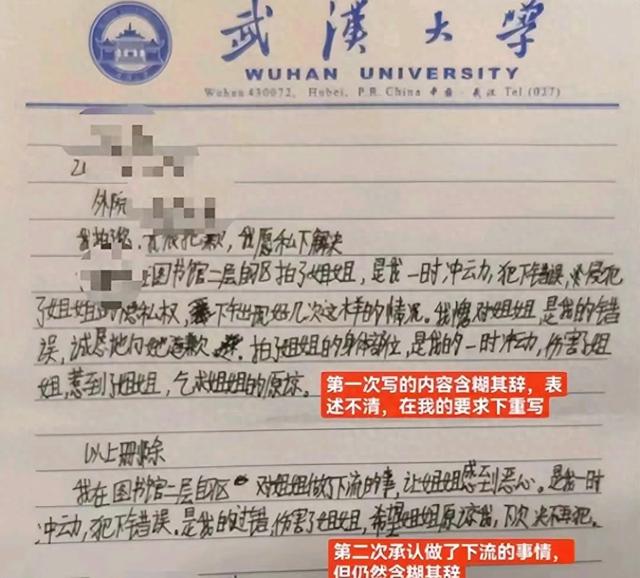 武漢大學
WUHAN UNIVERSITY
Wuhan 430072, Hubei, P.R. China 中国·武汉 Tel.(027)
外院
我抱歉,道歉,我愿私下解决
在图书馆二层自区拍了姐姐,是我一时冲动,犯下错误,侵犯
了姐姐的隐私权,出现好几次这样的情况。我愧对姐姐,是我的错
误,诚恳地向她道歉,拍了姐姐的身体部位,是我的一时冲动,伤害了姐
姐,惹到了姐姐,乞求姐姐的原谅。
第一次写的内容含糊其辞,表
述不清,在我的要求下重写
以上删除
我在图书馆二层自区 对姐姐做了下流的事,让姐姐感到恶心。是我一时
冲动,犯下错误。是我的过错,伤害了姐姐,希望姐姐原谅我,下次决不再犯。
第二次承认做了下流的事情,
但仍然含糊其辞